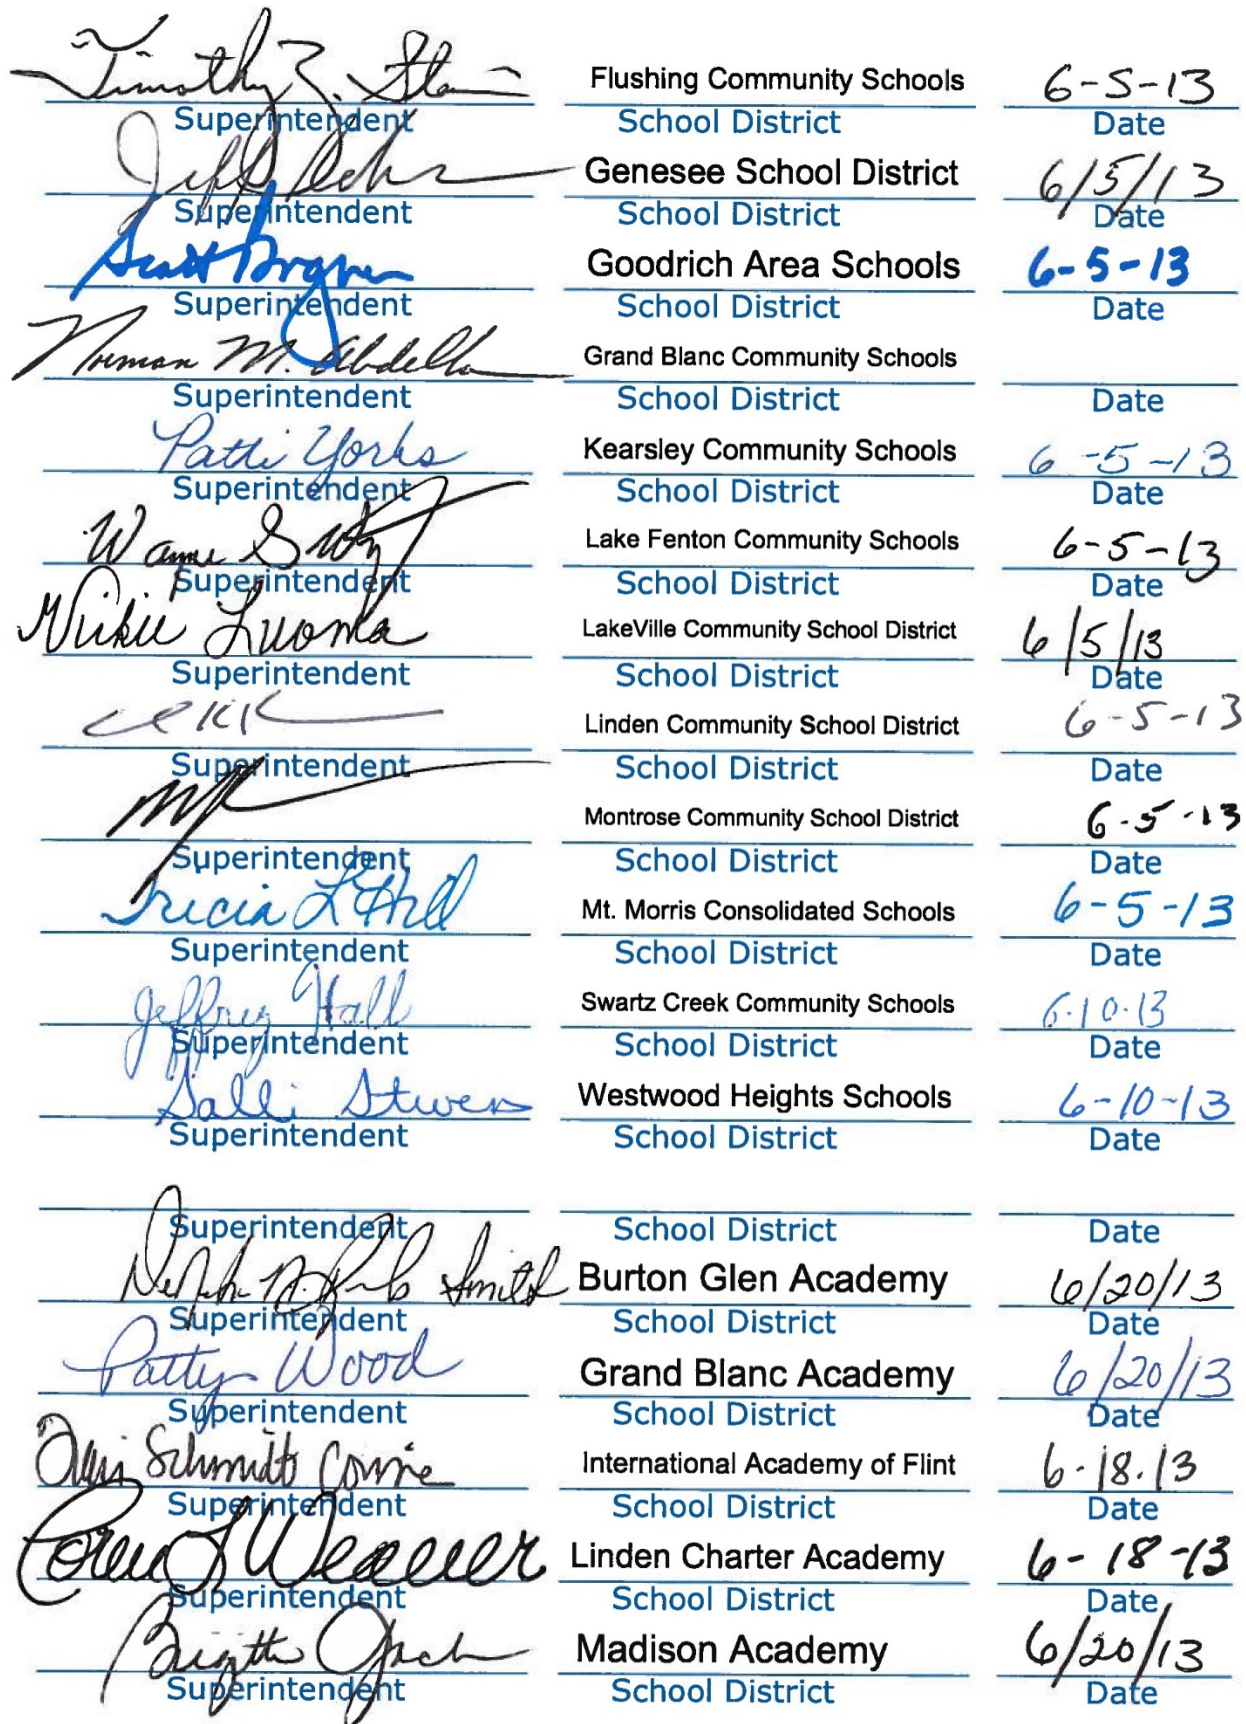 Timothy R. Stein Flushing Community Schools 6-5-13
Superintendent School District Date
Jeff Genesee School District 6/5/13
Superintendent School District Date
Scott Bogner Goodrich Area Schools 6-5-13
Superintendent School District Date
Norman M. Abdella Grand Blanc Community Schools
Superintendent School District Date
Patti Yorks Kearsley Community Schools 6-5-13
Superintendent School District Date
Wayne Lake Fenton Community Schools 6-5-13
Superintendent School District Date
Vickie Luoma LakeVille Community School District 6/5/13
Superintendent School District Date
Linden Community School District 6-5-13
Superintendent School District Date
Montrose Community School District 6-5-13
Superintendent School District Date
Tricia L Hill Mt. Morris Consolidated Schools 6-5-13
Superintendent School District Date
Jeffrey Hall Swartz Creek Community Schools 6.10.13
Superintendent School District Date
Salli Stevens Westwood Heights Schools 6-10-13
Superintendent School District Date
Superintendent School District Date
Smith Burton Glen Academy 6/20/13
Superintendent School District Date
Patty Wood Grand Blanc Academy 6/20/13
Superintendent School District Date
Schmidt International Academy of Flint 6.18.13
Superintendent School District Date
L Weaver Linden Charter Academy 6-18-13
Superintendent School District Date
Madison Academy 6/20/13
Superintendent School District Date